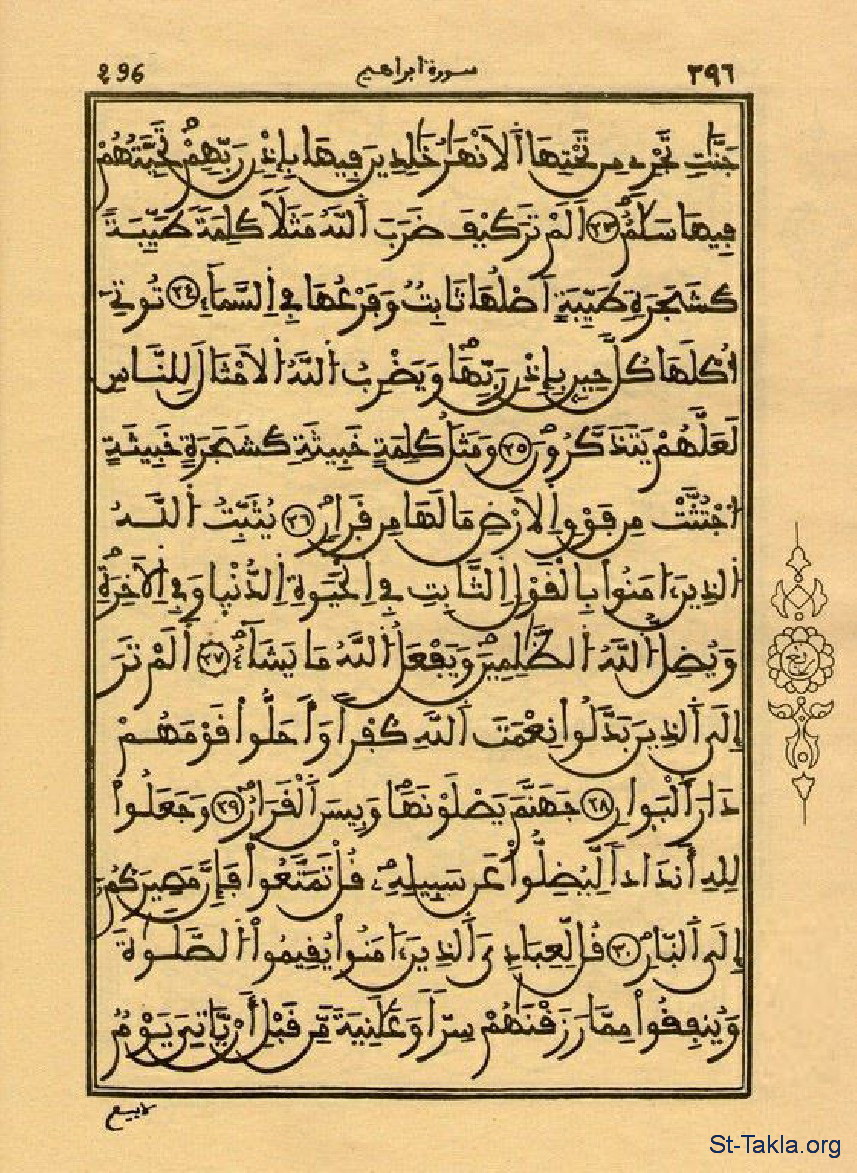 296 سورة ابراهيم ٢٩٦
جَنَّٰتٍ تَجْرِے مِن تَحْتِهَا اَ۬لَانْهَٰرُ خَٰلِدِينَ فِيهَا بِإِذْنِ رَبِّهِمْ تَحِيَّتُهُمْ
فِيهَا سَلَٰمٌ ٢٣ اَلَمْ تَرَ كَيْفَ ضَرَبَ اَ۬للَّهُ مَثَلاٗ كَلِمَةٗ طَيِّبَةٗ
كَشَجَرَةٖ طَيِّبَةٍ اَصْلُهَا ثَابِتٞ وَفَرْعُهَا فِے اِ۬لسَّمَآءِ ٢٤ تُوتِےٓ
أُكْلَهَا كُلَّ حِينِۢ بِإِذْنِ رَبِّهَا وَيَضْرِبُ اُ۬للَّهُ اُ۬لَامْثَالَ لِلنَّاسِ
لَعَلَّهُمْ يَتَذَكَّرُونَ ٢٥ وَمَثَلُ كَلِمَةٍ خَبِيثَةٖ كَشَجَرَةٍ خَبِيثَةٍ
اِ۟جْتُثَّتْ مِن فَوْقِ اِ۬لَارْضِ مَا لَهَا مِن قَرَارٖ ٢٦ يُثَبِّتُ اُ۬للَّهُ
اُ۬لذِينَ ءَامَنُواْ بِالْقَوْلِ اِ۬لثَّابِتِ فِے اِ۬لْحَيَوٰةِ اِ۬لدُّنْيٜا وَفِے اِ۬لَاخِرَةِ
وَيُضِلُّ اُ۬للَّهُ اُ۬لظَّٰلِمِينَ وَيَفْعَلُ اُ۬للَّهُ مَا يَشَآءُ ٢٧ اَلَمْ تَرَ
إِلَى اَ۬لذِينَ بَدَّلُواْ نِعْمَتَ اَ۬للَّهِ كُفْراٗ وَأَحَلُّواْ قَوْمَهُمْ
دَارَ اَ۬لْبَوَارِ ٢٨ جَهَنَّمَ يَصْلَوْنَهَا وَبِيسَ اَ۬لْقَرَارُ ٢٩ وَجَعَلُواْ
لِلهِ أَندَاداٗ لِّيُضِلُّواْ عَن سَبِيلِهِۦ قُلْ تَمَتَّعُواْ فَإِنَّ مَصِيرَكُمُۥٓ
إِلَى اَ۬لنّٜارِ ٣٠ قُل لِّعِبَادِيَ اَ۬لذِينَ ءَامَنُواْ يُقِيمُواْ اُ۬لصَّلَوٰةَ
وَيُنفِقُواْ مِمَّا رَزَقْنَٰهُمْ سِرّاٗ وَعَلَٰنِيَةٗ مِّن قَبْلِ أَنْ يَّاتِيَ يَوْمٞ
لا بيع
St-Takla.org